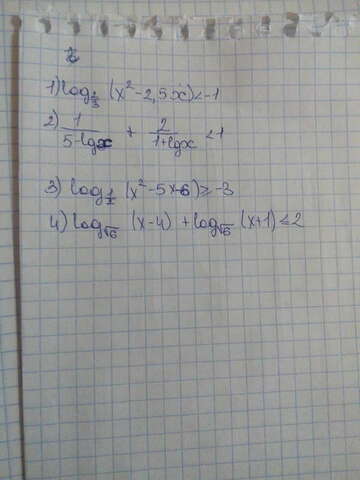 1) log_{1/3} (x² - 2,5x) < -1
2) 1/(5-lgx) + 2/(1+lgx) < 1
3) log_{1/2} (x² - 5x - 6) ≥ -3
4) log_{√6} (x-4) + log_{√6} (x+1) ≤ 2